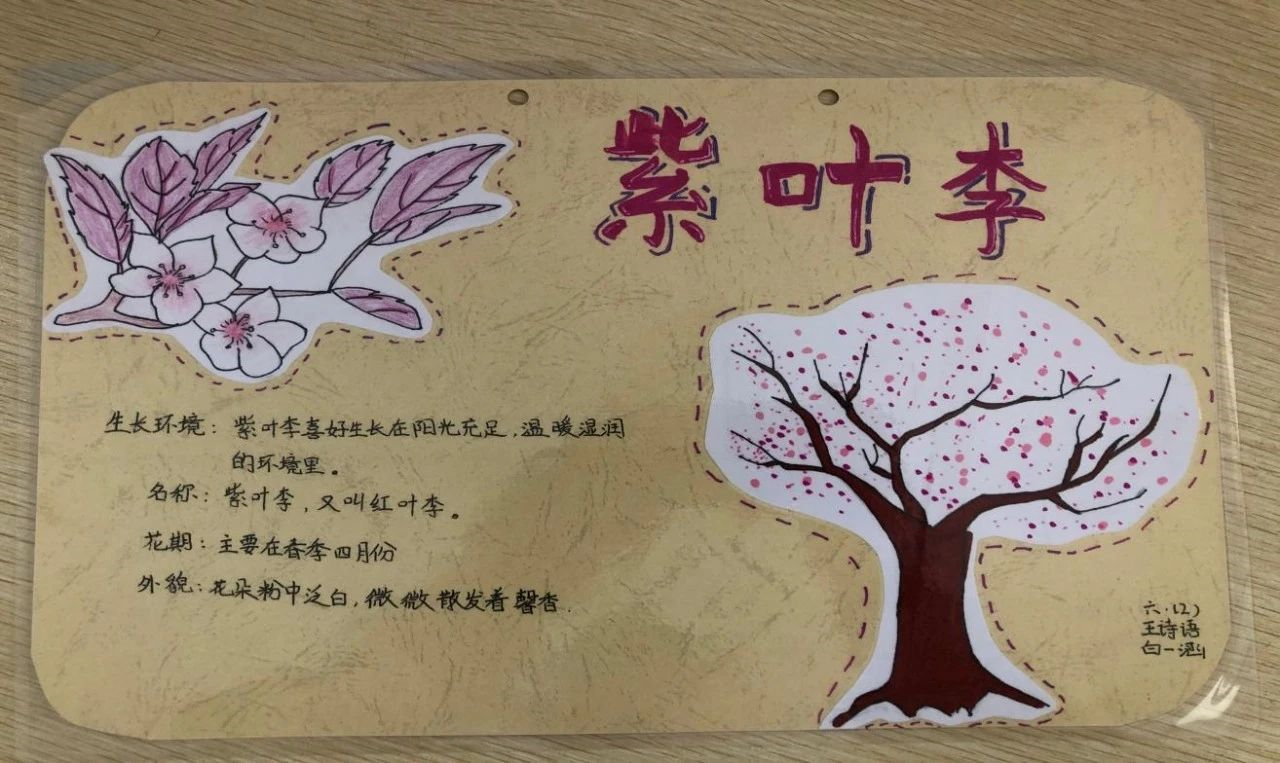 紫叶李
生长环境：紫叶李喜好生长在阳光充足，温暖湿润
的环境里。
名称：紫叶李，又叫红叶李。
花期：主要在春季四月份
外貌：花朵粉中泛白，微微散发着馨香.
六·(2)
王诗语
白一涵